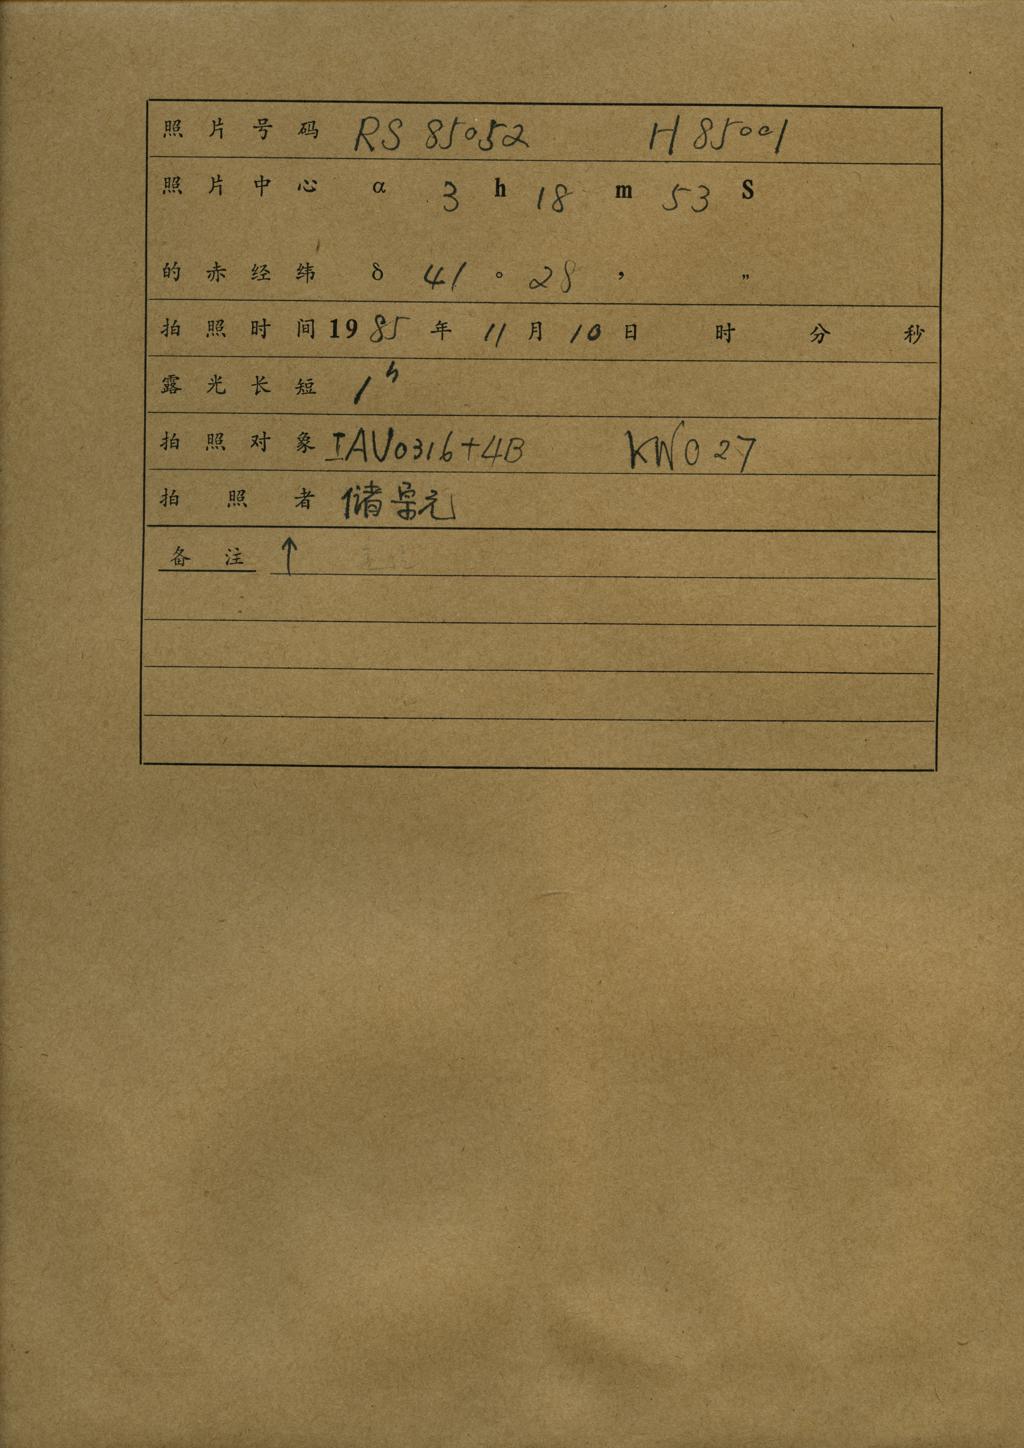 照片号码 RS 85052 H 85001
照片中心 α 3 h 18 m 53 S
的赤经纬 δ 41 ° 28 ′ ″
拍照时间 1985年 11月 10日 时 分 秒
露光长短 1h
拍照对象 IAU0316+4B KW027
拍照者 储宗元
备注 ↑